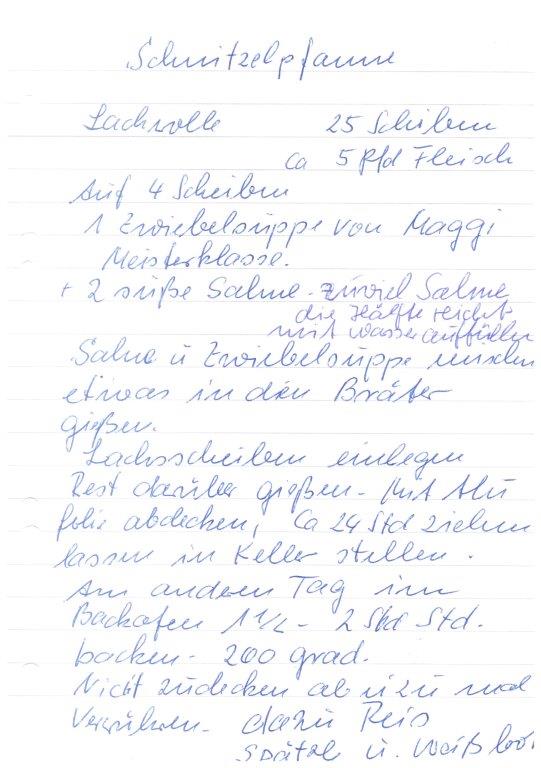 Schnitzelpfanne
Lachrolle 25 Scheiben
ca 5 Pfd Fleisch
Auf 4 Scheiben
1 Zwiebelsuppe von Maggi
Meisterklasse.
+ 2 süße Sahne - zuviel Sahne
die Hälfte reicht
mit wasser auffüllen
Sahne u Zwiebelsuppe mischen
etwas in den Bräter
gießen.
Lachsscheiben einlegen
Rest darüber gießen - Mit Alu
folie abdecken, Ca 24 Std ziehen
lassen in Keller stellen.
Am anderen Tag im
Backofen 1 1/2 - 2 Std Std.
backen - 200 grad.
Nicht zudecken ab u zu mal
Verrühren - dazu Reis
Spätzle u. Weißbrot